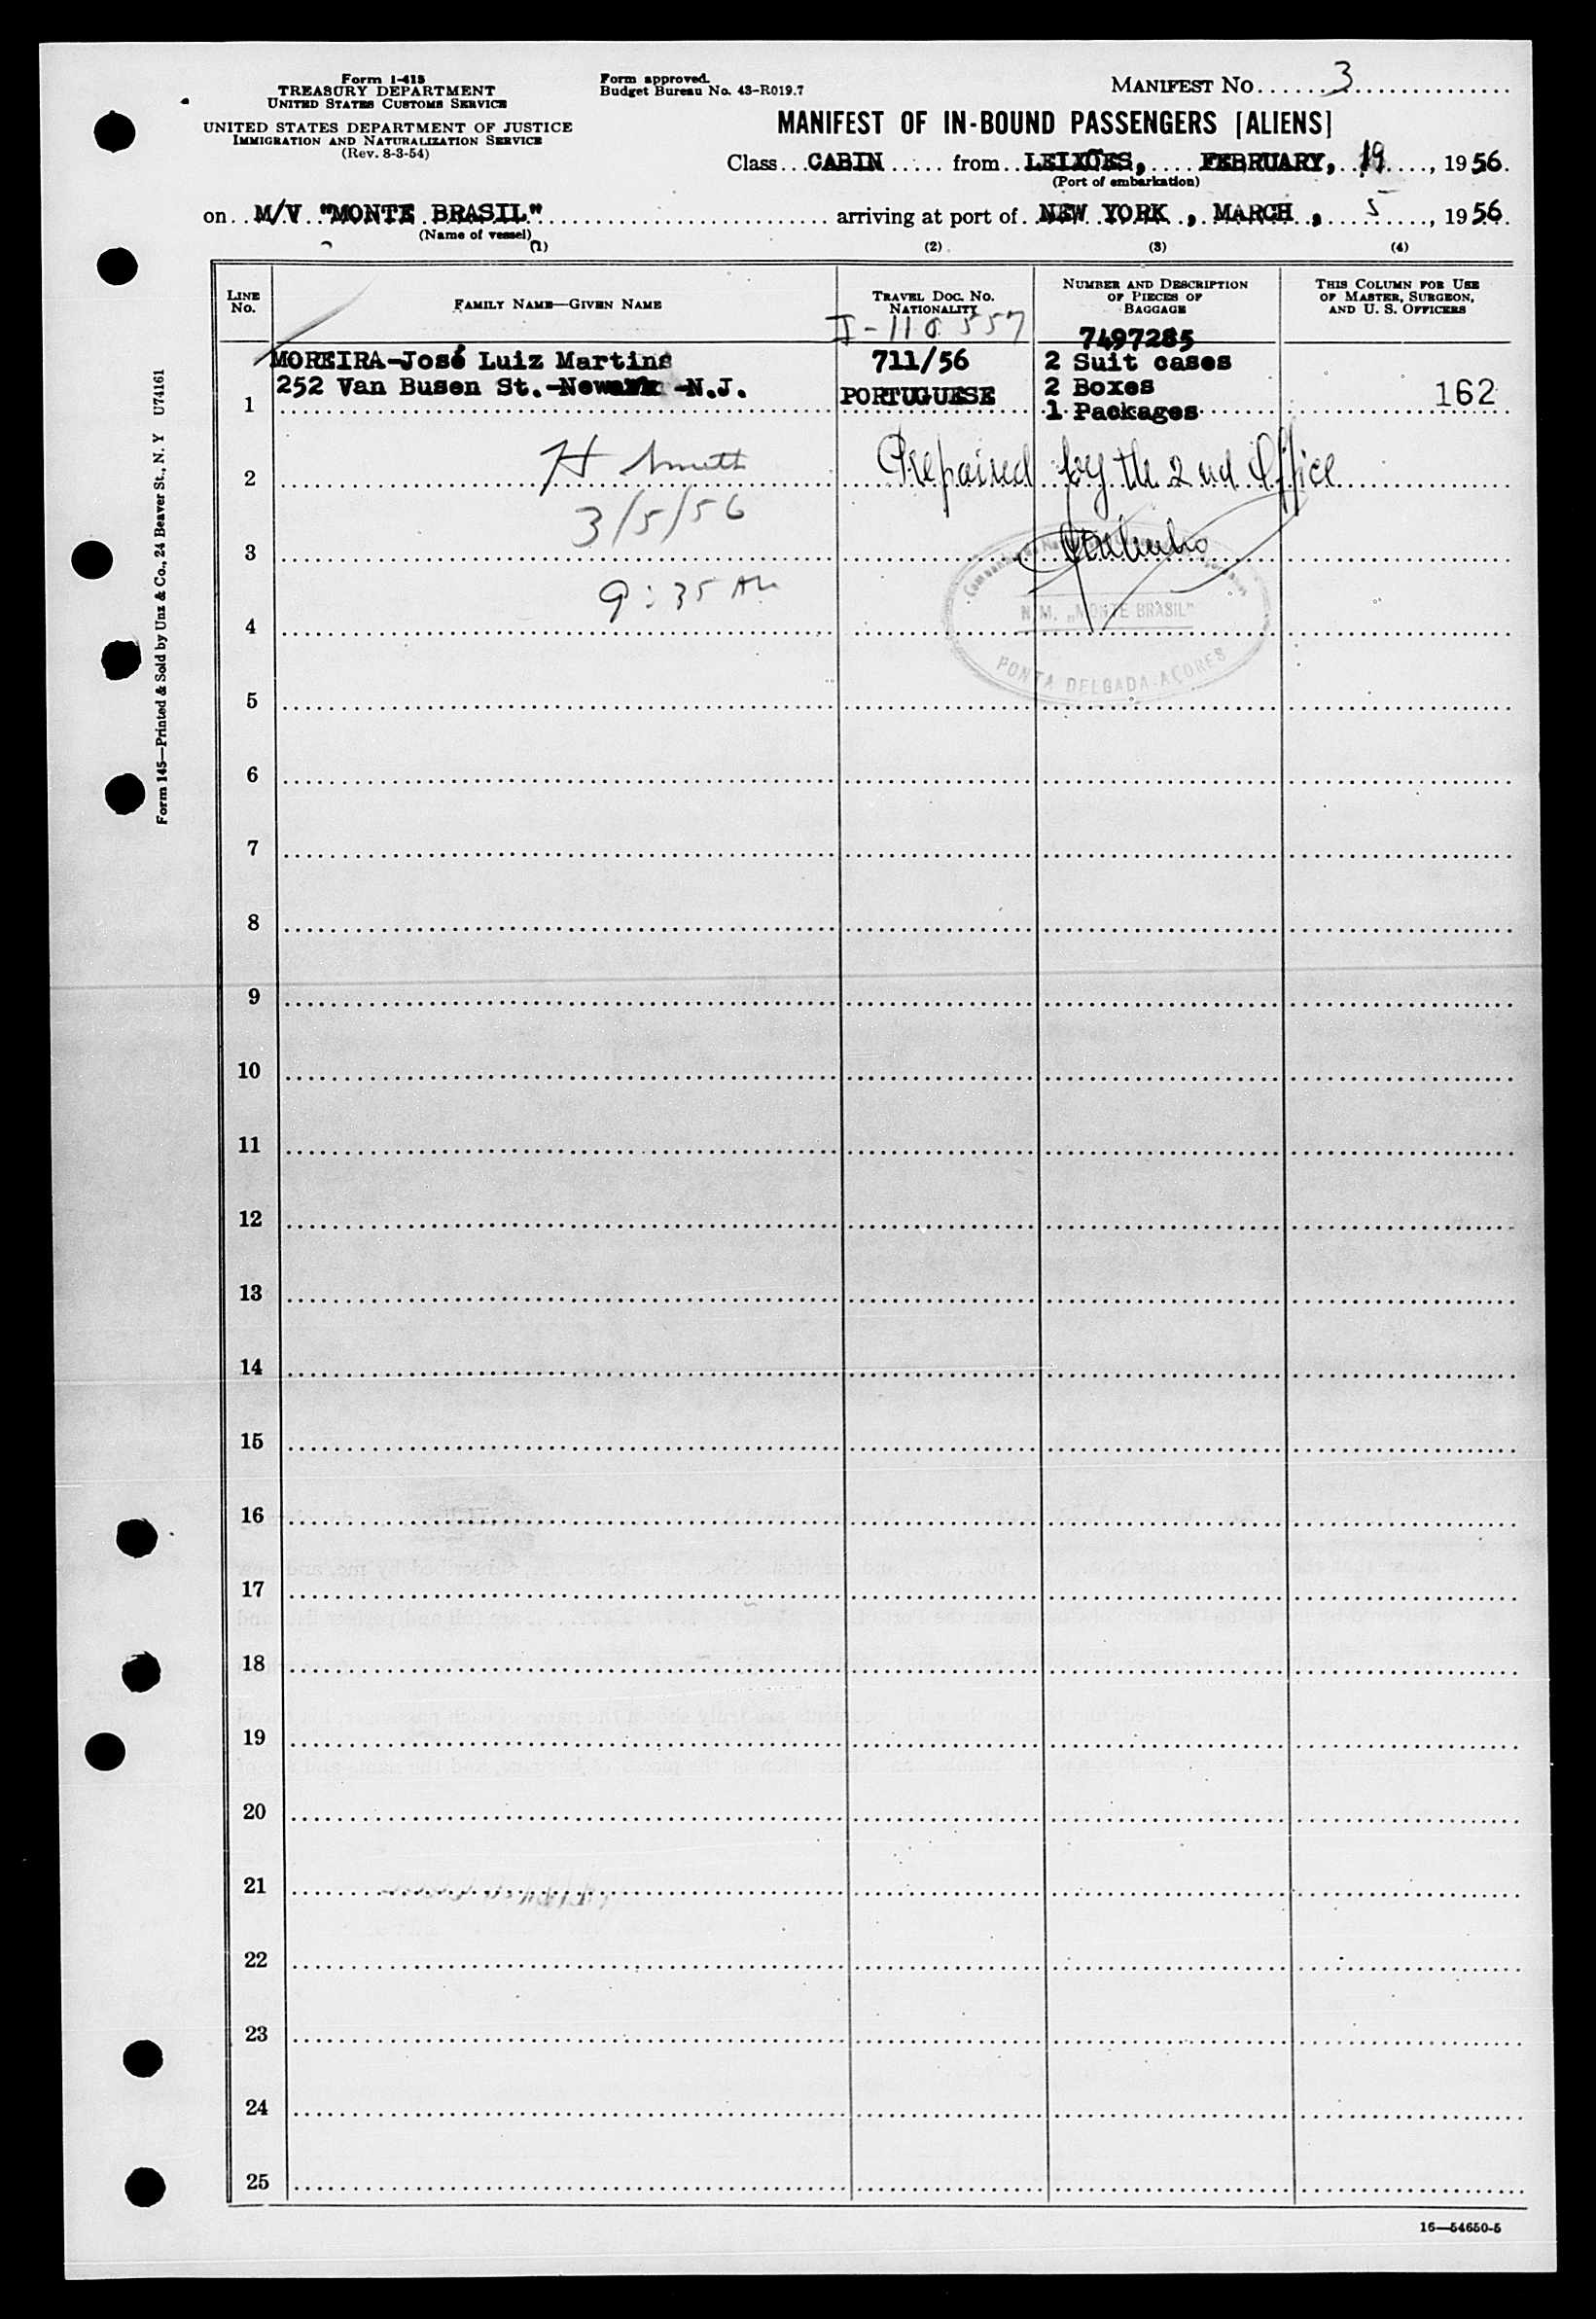 Form I-415
TREASURY DEPARTMENT
UNITED STATES CUSTOMS SERVICE
UNITED STATES DEPARTMENT OF JUSTICE
IMMIGRATION AND NATURALIZATION SERVICE
(Rev. 8-3-54)
Form approved.
Budget Bureau No. 43-R019.7
MANIFEST NO. 3
MANIFEST OF IN-BOUND PASSENGERS [ALIENS]
Class CABIN from LEIXÕES, FEBRUARY, 19, 1956.
(Port of embarkation)
on M/V "MONTE BRASIL" arriving at port of NEW YORK, MARCH, 5, 1956
(Name of vessel)
(1) (2) (3) (4)
LINE NO.
FAMILY NAME—GIVEN NAME
TRAVEL DOC. NO.
NATIONALITY
NUMBER AND DESCRIPTION
OF PIECES OF
BAGGAGE
THIS COLUMN FOR USE
OF MASTER, SURGEON,
AND U. S. OFFICERS
7497285
MOREIRA-José Luiz Martins 711/56 2 Suit cases
252 Van Busen St.-Newark -N.J. PORTUGUESE 2 Boxes 162
1 1 Packages
2 H Smith Prepaired by the 2nd Office
3/5/56
3
9:35 AM
4 N/M. „MONTE BRASIL"
PONTA DELGADA-AÇORES
5
6
7
8
9
10
11
12
13
14
15
16
17
18
19
20
21
22
23
24
25
Form 145—Printed & Sold by Unz & Co., 24 Beaver St., N. Y U74161
16—54650-5